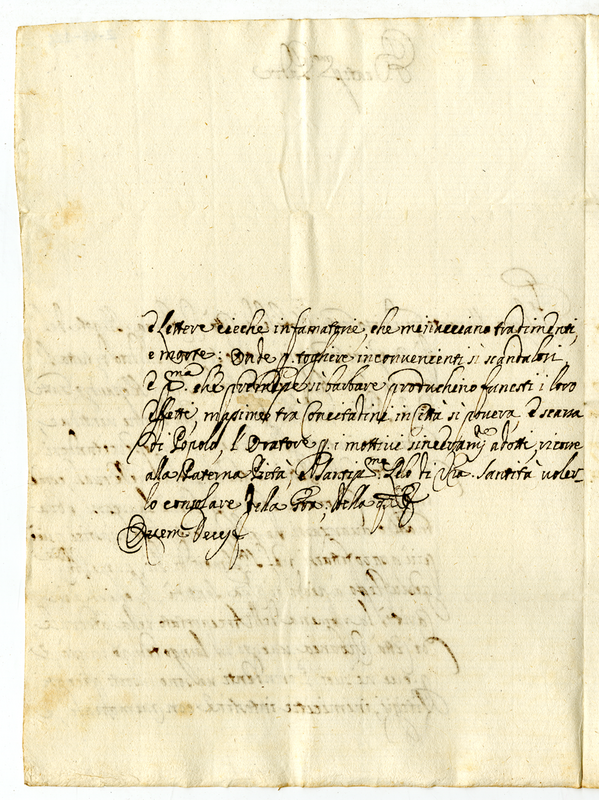 e lettere cieche infamatorie, che minacciano tradimenti,
e morte: Onde p. togliere inconvenienti si scandalosi
e p.ma che premesse si barbare producheno funesti i loro
effetti, massime trà Concitadini in Città si povera, e scarsa
di Popolo, l'Oratore p. i mottivi sinceram.te adotti, ricorre
alla Paterna Pietà, e Santiss.mo Zelo di V.ra Santità voler-
lo consolare della Gra, della q.le
Quam Deus